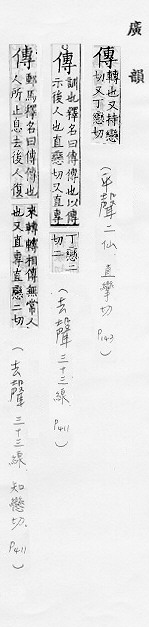 廣韻
傳 轉也又持戀
切又丁戀切
(平聲 二仙 直攣切 P143)
傳 訓也釋名曰傳傳也以傳
示後人也直戀切又直專
丁戀二
切二
(去聲 三十三線 P411)
傳 郵馬釋名曰傳傳也
人所止息去後人復
來轉轉相傳無常人
也又直專直戀二切
(去聲 三十三線 知戀切 P411)